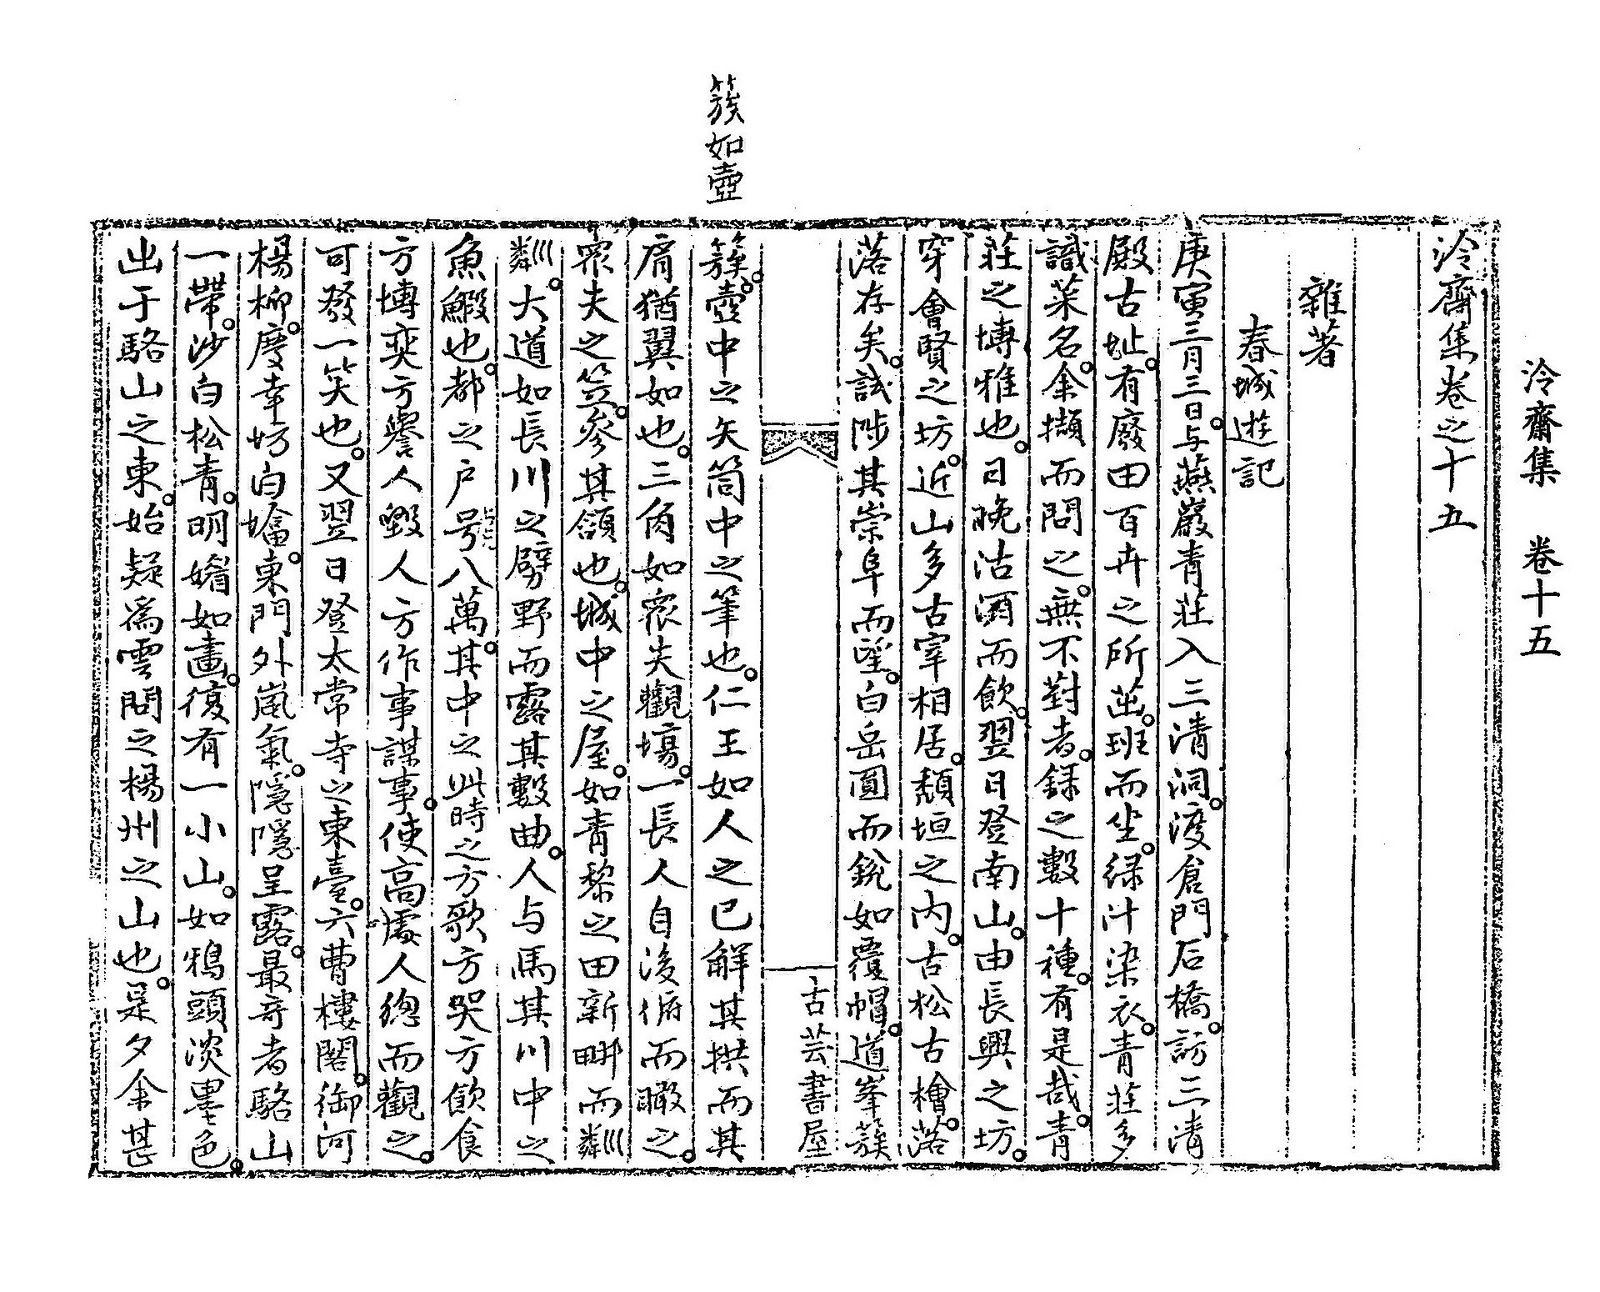 泠齋集 卷十五
泠齋集卷之十五
雜著
春城遊記
庚寅三月三日与燕巖靑莊入三淸洞渡倉門石橋訪三淸
殿古址有廢田百卉之所茁班而坐綠汁染衣靑莊多
識菜名余擷而問之無不對者錄之數十種有是哉靑
莊之博雅也日晚沽酒而飮翌日登南山由長興之坊
穿會賢之坊近山多古宰相居頹垣之內古松古檜落
落存矣試陟其崇阜而望白岳圓而銳如覆帽道峯簇
古芸書屋
簇如壺
簇壺中之矢筒中之筆也仁王如人之已解其拱而其
肩猶翼如也三角如衆夫觀場一長人自後俯而瞰之
衆夫之笠參其頷也城中之屋如靑黎之田新畊而粼
粼大道如長川之劈野而露其數曲人与馬其川中之
魚鰕也都之戶号八萬其中之此時之方歌方哭方飮食
方博奕方譽人毁人方作事謀事使高處人緫而觀之
可發一笑也又翌日登太常寺之東臺六曹樓閣御河
楊柳慶幸坊白塔東門外嵐氣隱隱呈露最奇者駱山
一帶沙白松靑明媚如畫復有一小山如鴉頭淡墨色
出于駱山之東始疑爲雲問之楊州之山也是夕余甚